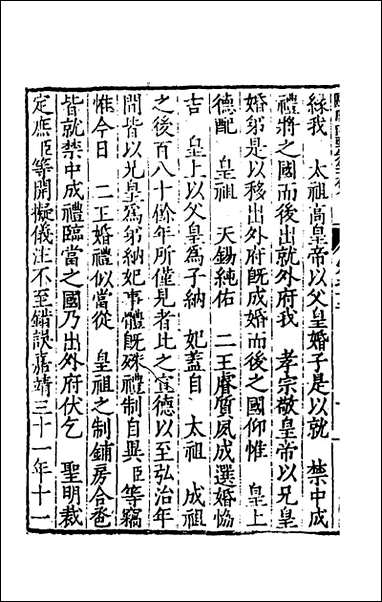 緣我　太祖高皇帝以父皇婚子是以就　禁中成
禮將之國而後出就外府我　孝宗敬皇帝以兄皇
婚弟是以移出外府既成婚而後之國仰惟　皇上
德配　皇祖　天錫純佑　二王睿質夙成選婚恊
吉　皇上以父皇爲子納　妃蓋自　太祖　成祖
之後百八十餘年所僅見者比之宣德以至弘治年
間皆以兄皇爲弟納妃事體既殊禮制自異臣等竊
惟今日　二王婚禮似當從　皇祖之制鋪房合巹
皆就禁中成禮臨當之國乃出外府伏乞　聖明裁
定庶臣等開擬儀注不至錯誤嘉靖三十一年十一